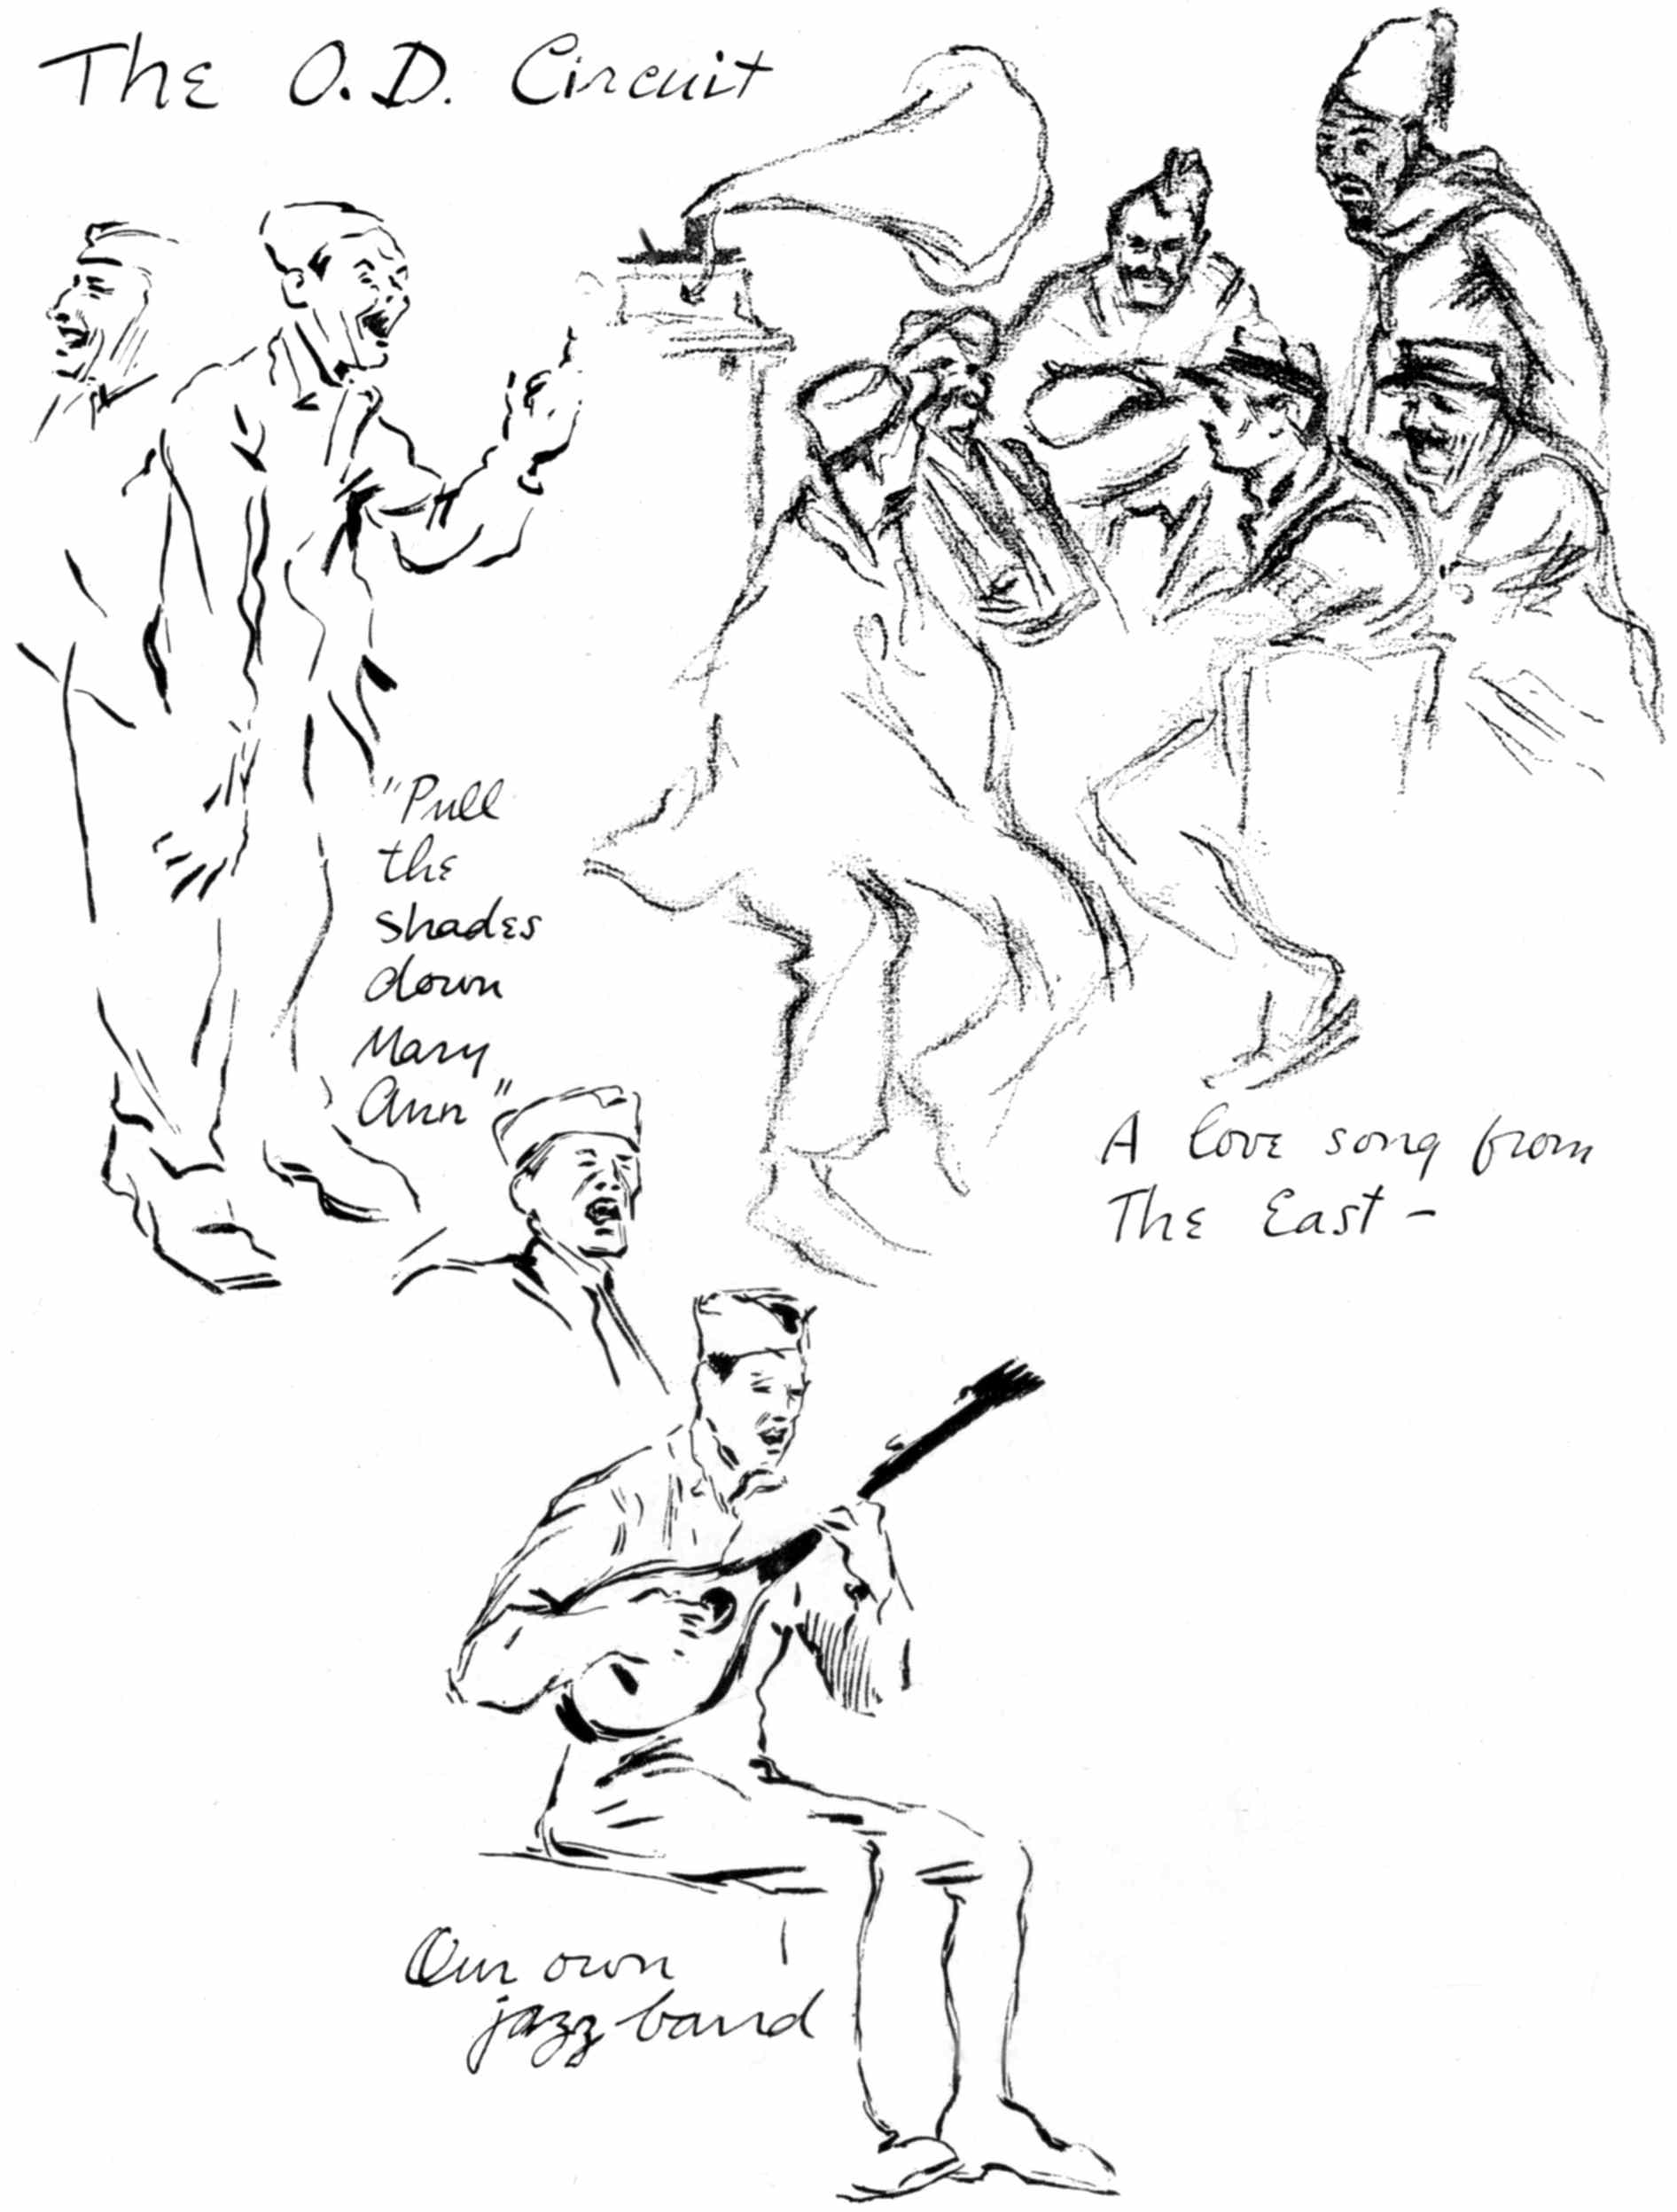 The O.D. Circuit
"Pull
the
shades
down
Mary
Ann"
A love song from
The East -
Our own
jazz band